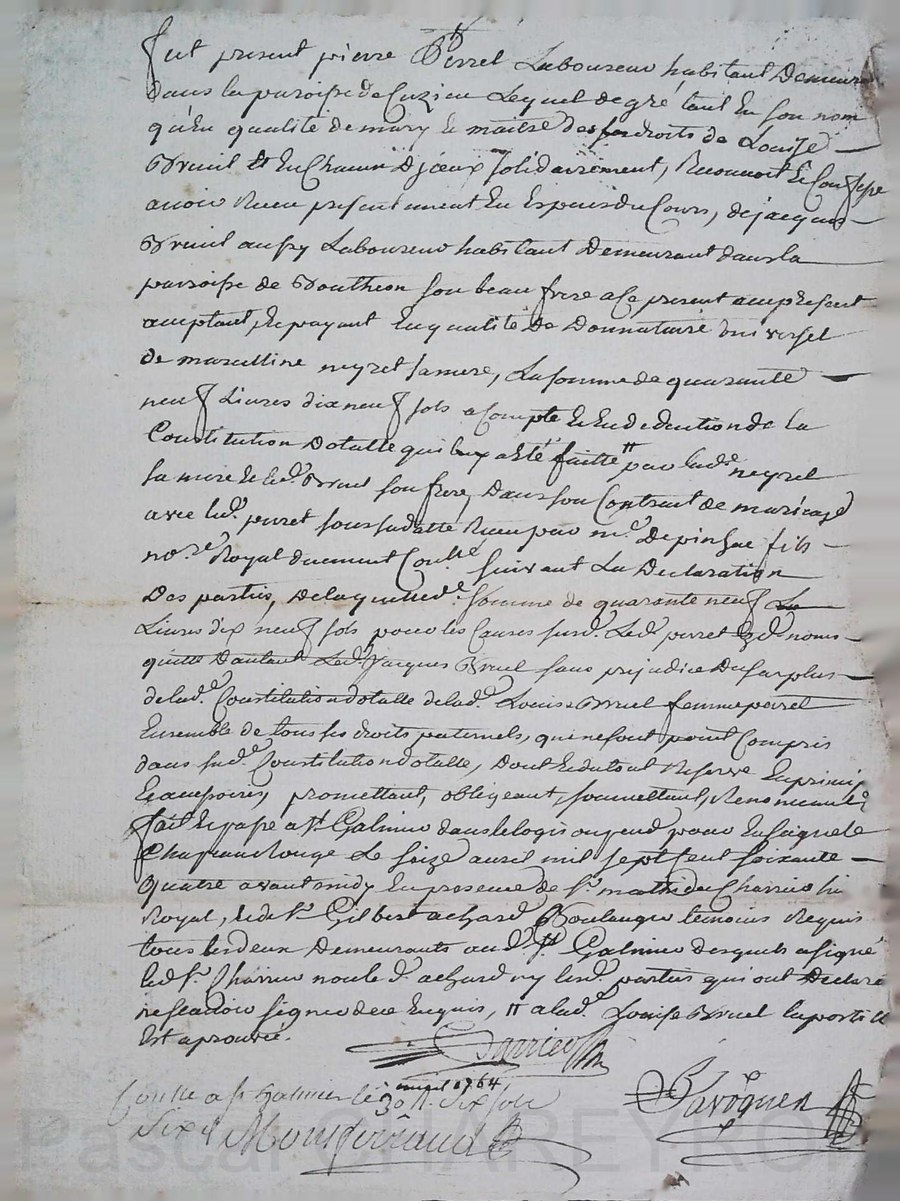 fut present pierre Perret Laboureur habitant Demeurant
dans la paroisse de Cuzieu Lequel de gré tant En Son nom
qu'En qualité de mary Et maitre des droits de Louise
Bruil Et En Chacun D'jceux solidairement, Reconnoit Et Confesse
avoir Receu presentement En Especes du Cours, de jacques
Bruil aussy Laboureur habitant Demeurant dans la
paroisse de Boutheon son beau frere a Ce present
acceptant, Et payant En qualité de Donnataire universel
de marcelline neyret sa mere, La somme de quarante
neuf Livres dix neuf sols a Compte Et En deduction de la
Constitution Dotalle qui luy a Eté faitte # par lade neyret
sa mere Et led. Bruel son frere, Dans son Contract de mariage
avec led. perret sous sa datte Receu par me. Depinhac fils
nore. Royal duement Conlle, suivant La Declaration
Des parties, De laquelled. somme de quarante neuf
Livres dix neuf sols pour les Causes susd. Led. perret Esd. noms
quitte D'autant Led. Jacques Bruel sans prejudice Du surplus
de lad. Constitution dotalle de lad. Louise Bruel femme perret
Ensemble de tous ses droits paternels, qui ne sont point Compris
dans sud. Constitution dotalle, Dont Et du tout Reserve
promettant, obligeant, soumettant, Renonceant
fait Et passé a St. Galmier dans le logis ou pend pour Enseigne le
Chapeau Rouge Le seize avril mil sept Cent soixante
quatre avant midy En presence de Sr. mathieu
Royal, Et de Sr. Gilbert achard Boulanger temoins Requis
tous les deux Demeurants aud. St. Galmier desquels a signé
led. Sr. non led. achard ny lesd. parties qui ont Declaré
ne scavoir signer de ce Enquis, # a lad. Louise Bruel
Est aprouvé.
Conlle a St Galmier le
avril 1764
six sols
Montferrand
Pascal CHAREYRON